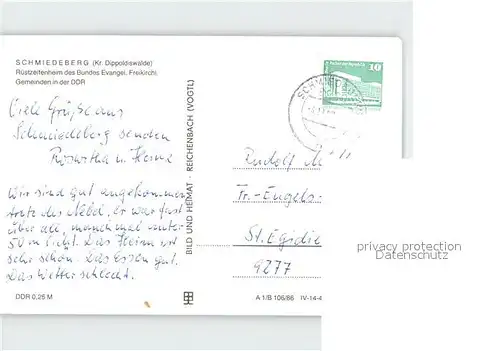 SCHMIEDEBERG (Kr. Dippoldiswalde)
Rüstzeitenheim des Bundes Evangel. Freikirchl.
Gemeinden in der DDR
10
SCHMIEDE
Viele Grüße aus
Schmiedeberg senden
Roswitha u. Heinz
Wir sind gut angekommen
trotz des Nebel, er war fast
über all, manchmal unter
50 m Sicht. Das Heim ist
sehr schön. Das Essen gut.
Das Wetter schlecht.
BILD UND HEIMAT · REICHENBACH (VOGTL)
Rudolf M
Fr.-Engels-
St. Egidie
9277
privacy protection
Datenschutz
DDR 0,25 M
A 1/B 106/86 IV-14-4